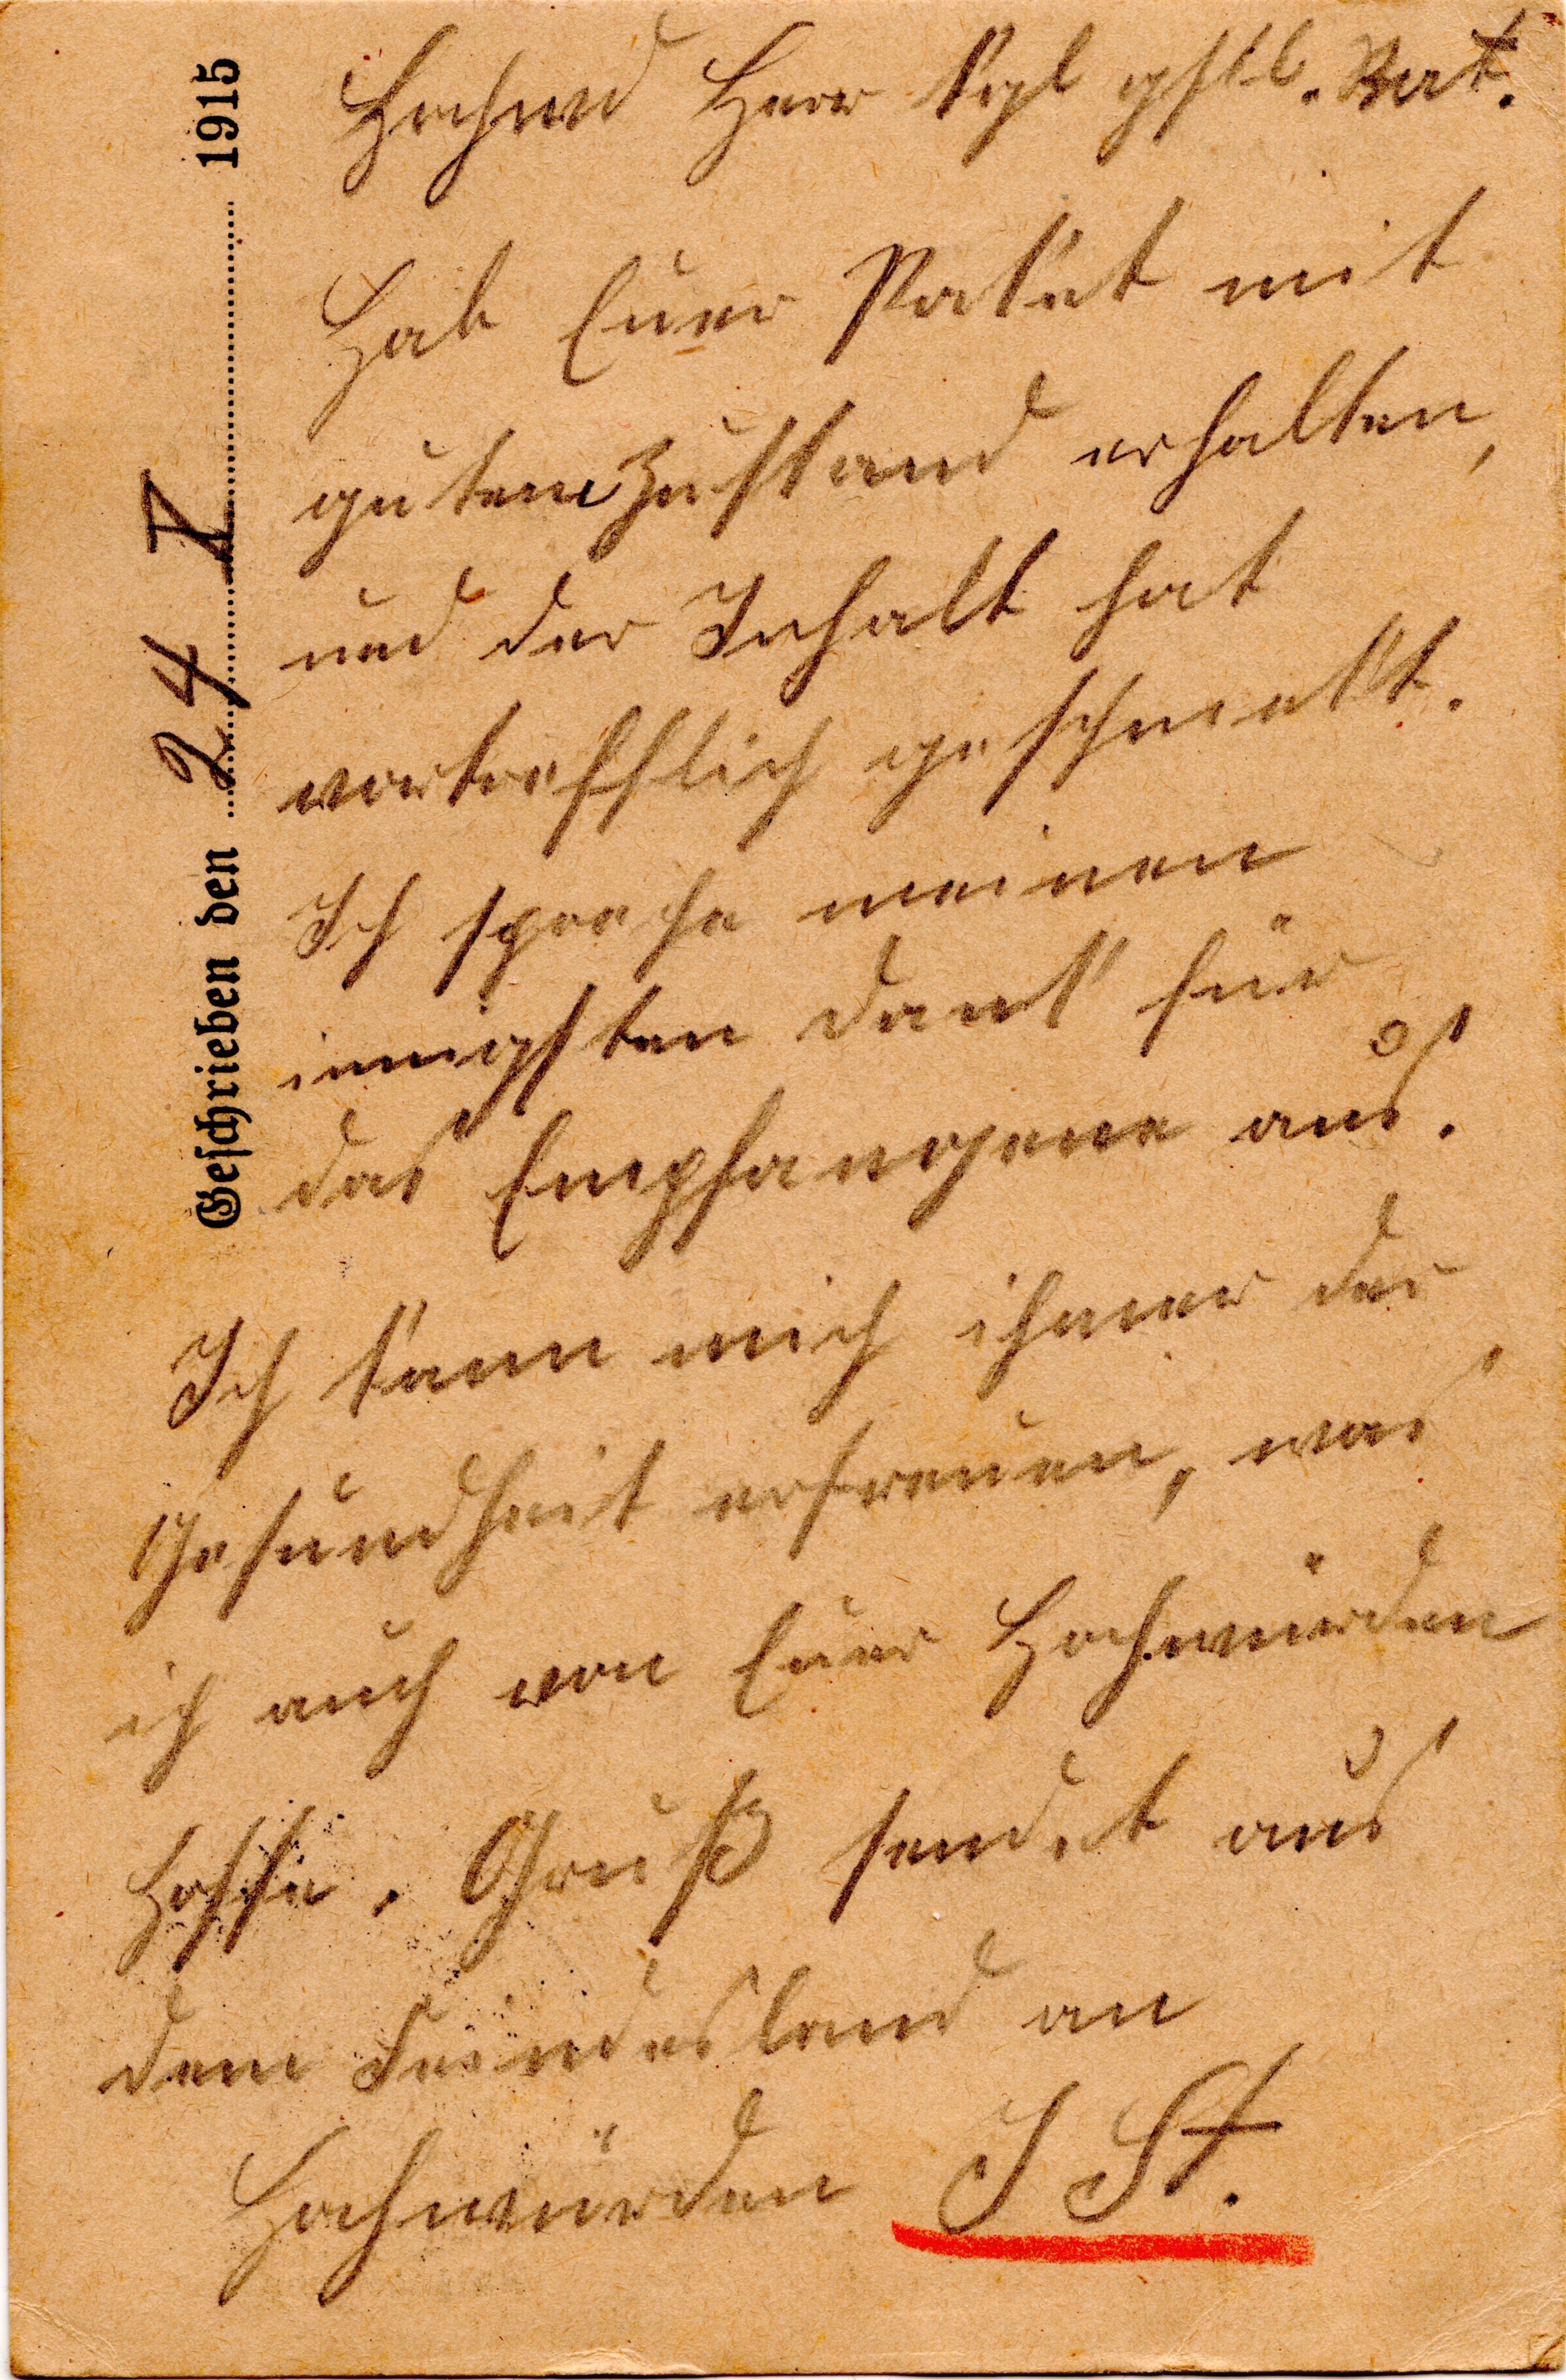 Geschrieben den 24 V 1915
Hochwd Herr kgl gstl. Rat.
Hab Euer Paket mit
guten Zustand erhalten,
und der Inhalt hat
vortrefflich geschmekt.
Ich spreche meinen
innigsten Dank für
das Empfangene aus.
Ich kann mich ihmer der
Gesundheit erfreuen, was
ich auch von Euer Hochwürden
hoffe. Gruß sendet aus
dem Feindesland an
Hochwürden J St.